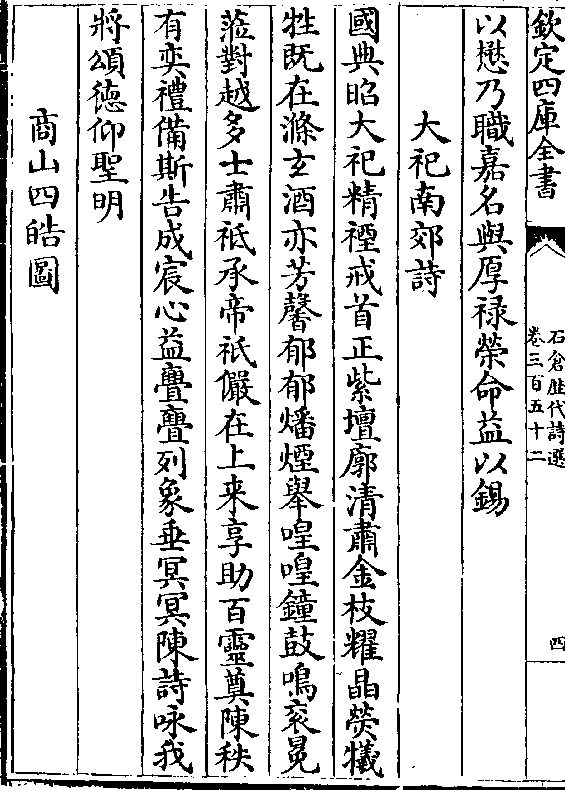 欽定四庫全書
石倉歴代詩選
卷三百五十二
四
以懋乃職嘉名與厚祿榮命益以錫
大祀南郊詩
國典昭大祀精禋戒首正紫壇廓清肅金枝耀晶熒犧
牲既在滌玄酒亦芳馨郁郁燔煙舉喤喤鐘鼓鳴衮冕
蒞對越多士肅祗承帝祇儼在上来享助百靈奠陳秩
有奕禮備斯告成宸心益亹亹列象垂冥冥陳詩咏我
將頌徳仰聖明
商山四皓圖